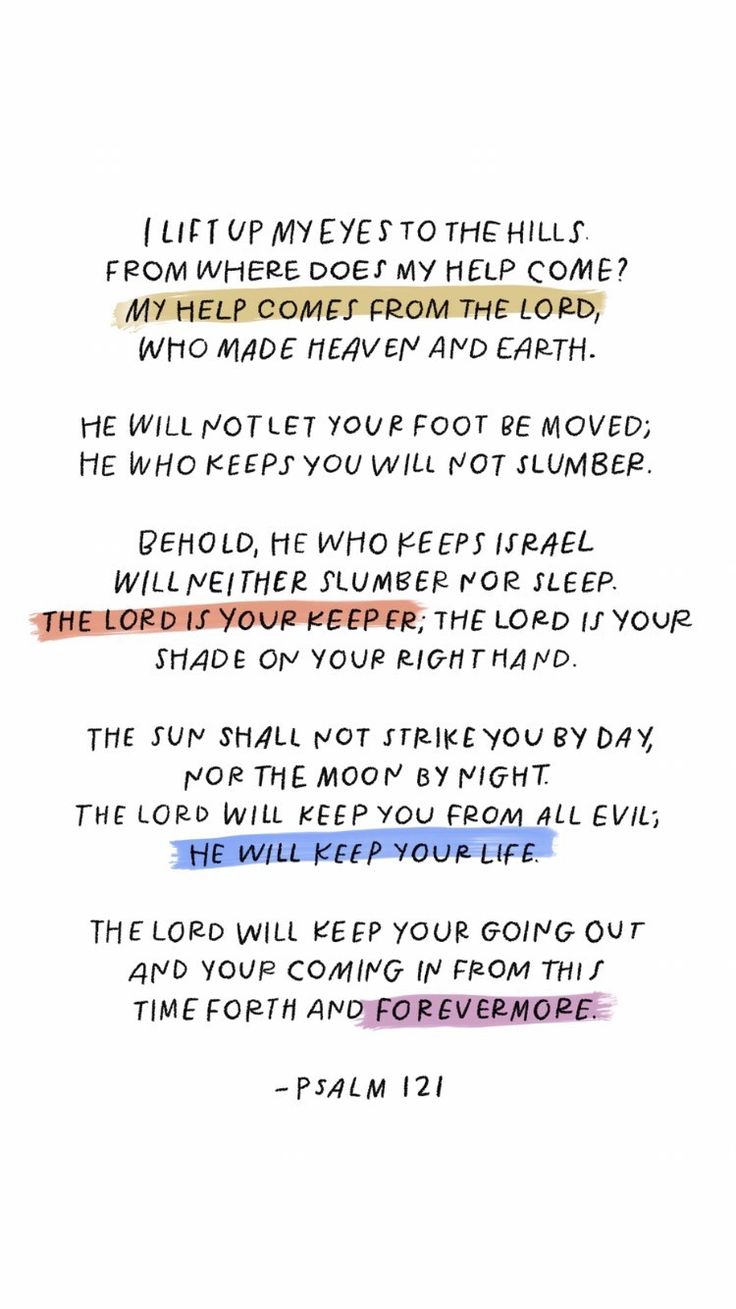 I LIFT UP MY EYES TO THE HILLS.
FROM WHERE DOES MY HELP COME?
MY HELP COMES FROM THE LORD,
WHO MADE HEAVEN AND EARTH.
HE WILL NOT LET YOUR FOOT BE MOVED;
HE WHO KEEPS YOU WILL NOT SLUMBER.
BEHOLD, HE WHO KEEPS ISRAEL
WILL NEITHER SLUMBER NOR SLEEP.
THE LORD IS YOUR KEEPER; THE LORD IS YOUR
SHADE ON YOUR RIGHT HAND.
THE SUN SHALL NOT STRIKE YOU BY DAY,
NOR THE MOON BY NIGHT.
THE LORD WILL KEEP YOU FROM ALL EVIL;
HE WILL KEEP YOUR LIFE.
THE LORD WILL KEEP YOUR GOING OUT
AND YOUR COMING IN FROM THIS
TIME FORTH AND FOREVERMORE.
-PSALM 121